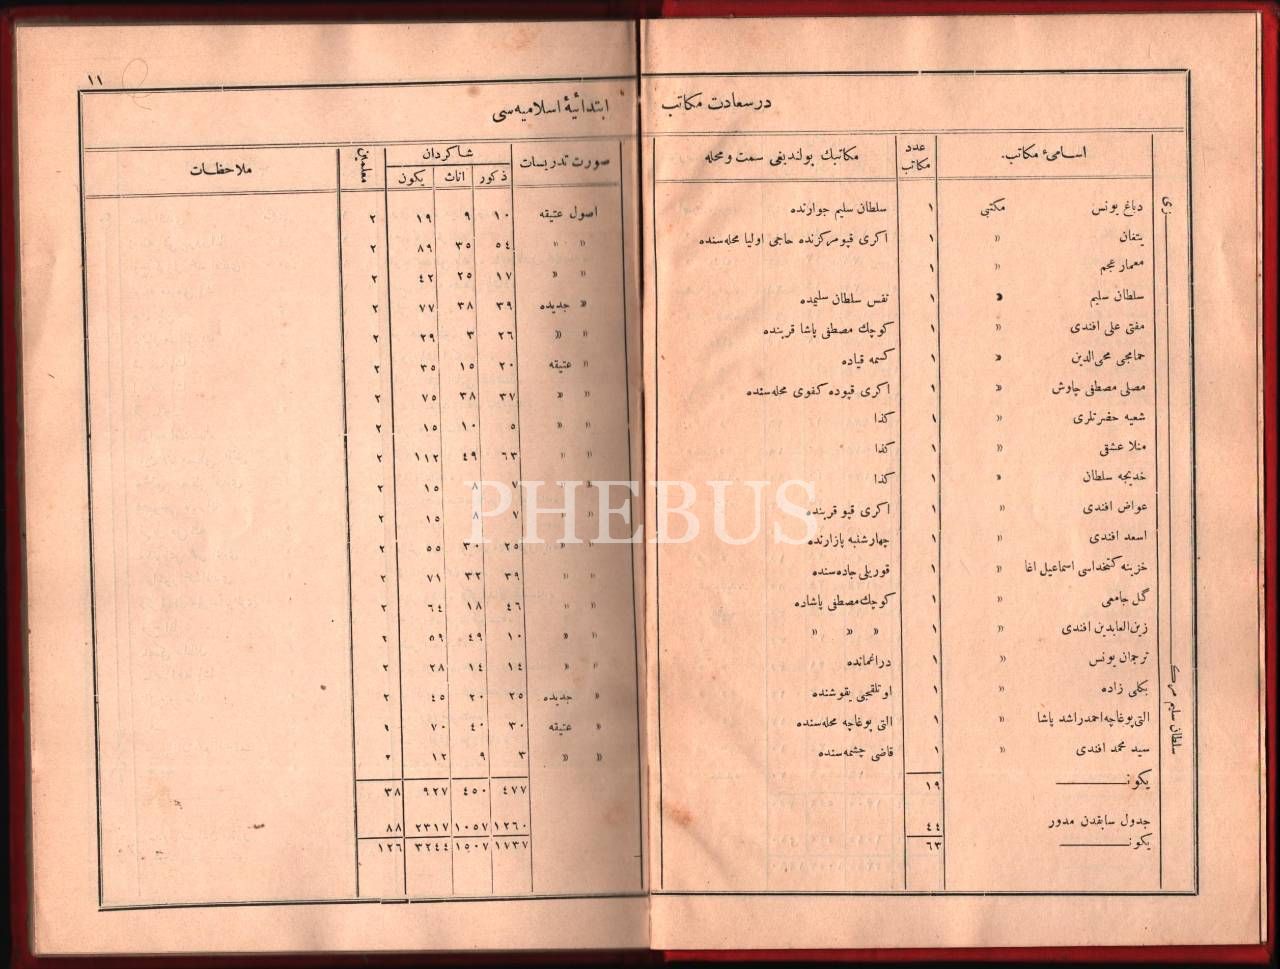 ١١
در سعادت مكاتب ابتدائيۀ اسلاميه سى
اسامئ مكاتب. عدد مكاتب مكاتبك بولنديغى سمت و محله صورت تدريسات شاكردان معلمين ملاحظات
ذكور اناث يكون
دباغ يونس مكتبى ١ سلطان سليم جوارنده اصول عتيقه ١٠ ٩ ١٩ ٢
يتفان » ١ اكرى قپو مركزنده حاجى اوليا محله سنده » » ٥٤ ٣٥ ٨٩ ٢
معمار عجم » ١ » » ١٧ ٢٥ ٤٢ ٢
سلطان سليم » ١ نفس سلطان سليمده » جديده ٣٩ ٣٨ ٧٧ ٢
مفتى على افندى » ١ كوچك مصطفى پاشا قربنده » » ٢٦ ٣ ٢٩ ٢
حمامجى محى الدين » ١ كسمه قياده » عتيقه ٢٠ ١٥ ٣٥ ٢
مصلى مصطفى چاوش » ١ اكرى قپوده كفوى محله سنده » » ٣٧ ٣٨ ٧٥ ٢
شعيه حضرتلرى » ١ كذا » » ٥ ١٠ ١٥ ٢
منلا عشقى » ١ كذا » » ٦٣ ٤٩ ١١٢ ٢
خديجه سلطان » ١ كذا » » ٧ ٨ ١٥ ٢
عواض افندى » ١ اكرى قپو قربنده » » ٧ ٨ ١٥ ٢
اسعد افندى » ١ چهارشنبه پازارنده » » ٢٥ ٣٠ ٥٥ ٢
خزينه كتخداسى اسماعيل اغا » ١ قوريلى جاده سنده » » ٣٩ ٣٢ ٧١ ٢
گل جامعى » ١ كوچك مصطفى پاشاده » » ٤٦ ١٨ ٦٤ ٢
زين العابدين افندى » ١ » » » » » ١٠ ٤٩ ٥٩ ٢
ترجمان يونس » ١ دراغمانده » » ١٤ ١٤ ٢٨ ٢
بكلى زاده » ١ اوتلقجى يقوشنده » جديده ٢٥ ٢٠ ٤٥ ٢
التى پوغاچه احمد راشد پاشا » ١ التى پوغاچه محله سنده » عتيقه ٣٠ ٤٠ ٧٠ ٢
سيد محمد افندى » ١ قاضى چشمه سنده » » ٣ ٩ ١٢ ٢
يكون ١٩ ٤٧٧ ٤٥٠ ٩٢٧ ٣٨
جدول سابقدن مدور ٤٤ ١٢٦٠ ١٠٥٧ ٢٣١٧ ٨٨
يكون ٦٣ ١٧٣٧ ١٥٠٧ ٣٢٤٤ ١٢٦
سلطان سليم مركزى
PHEBUS